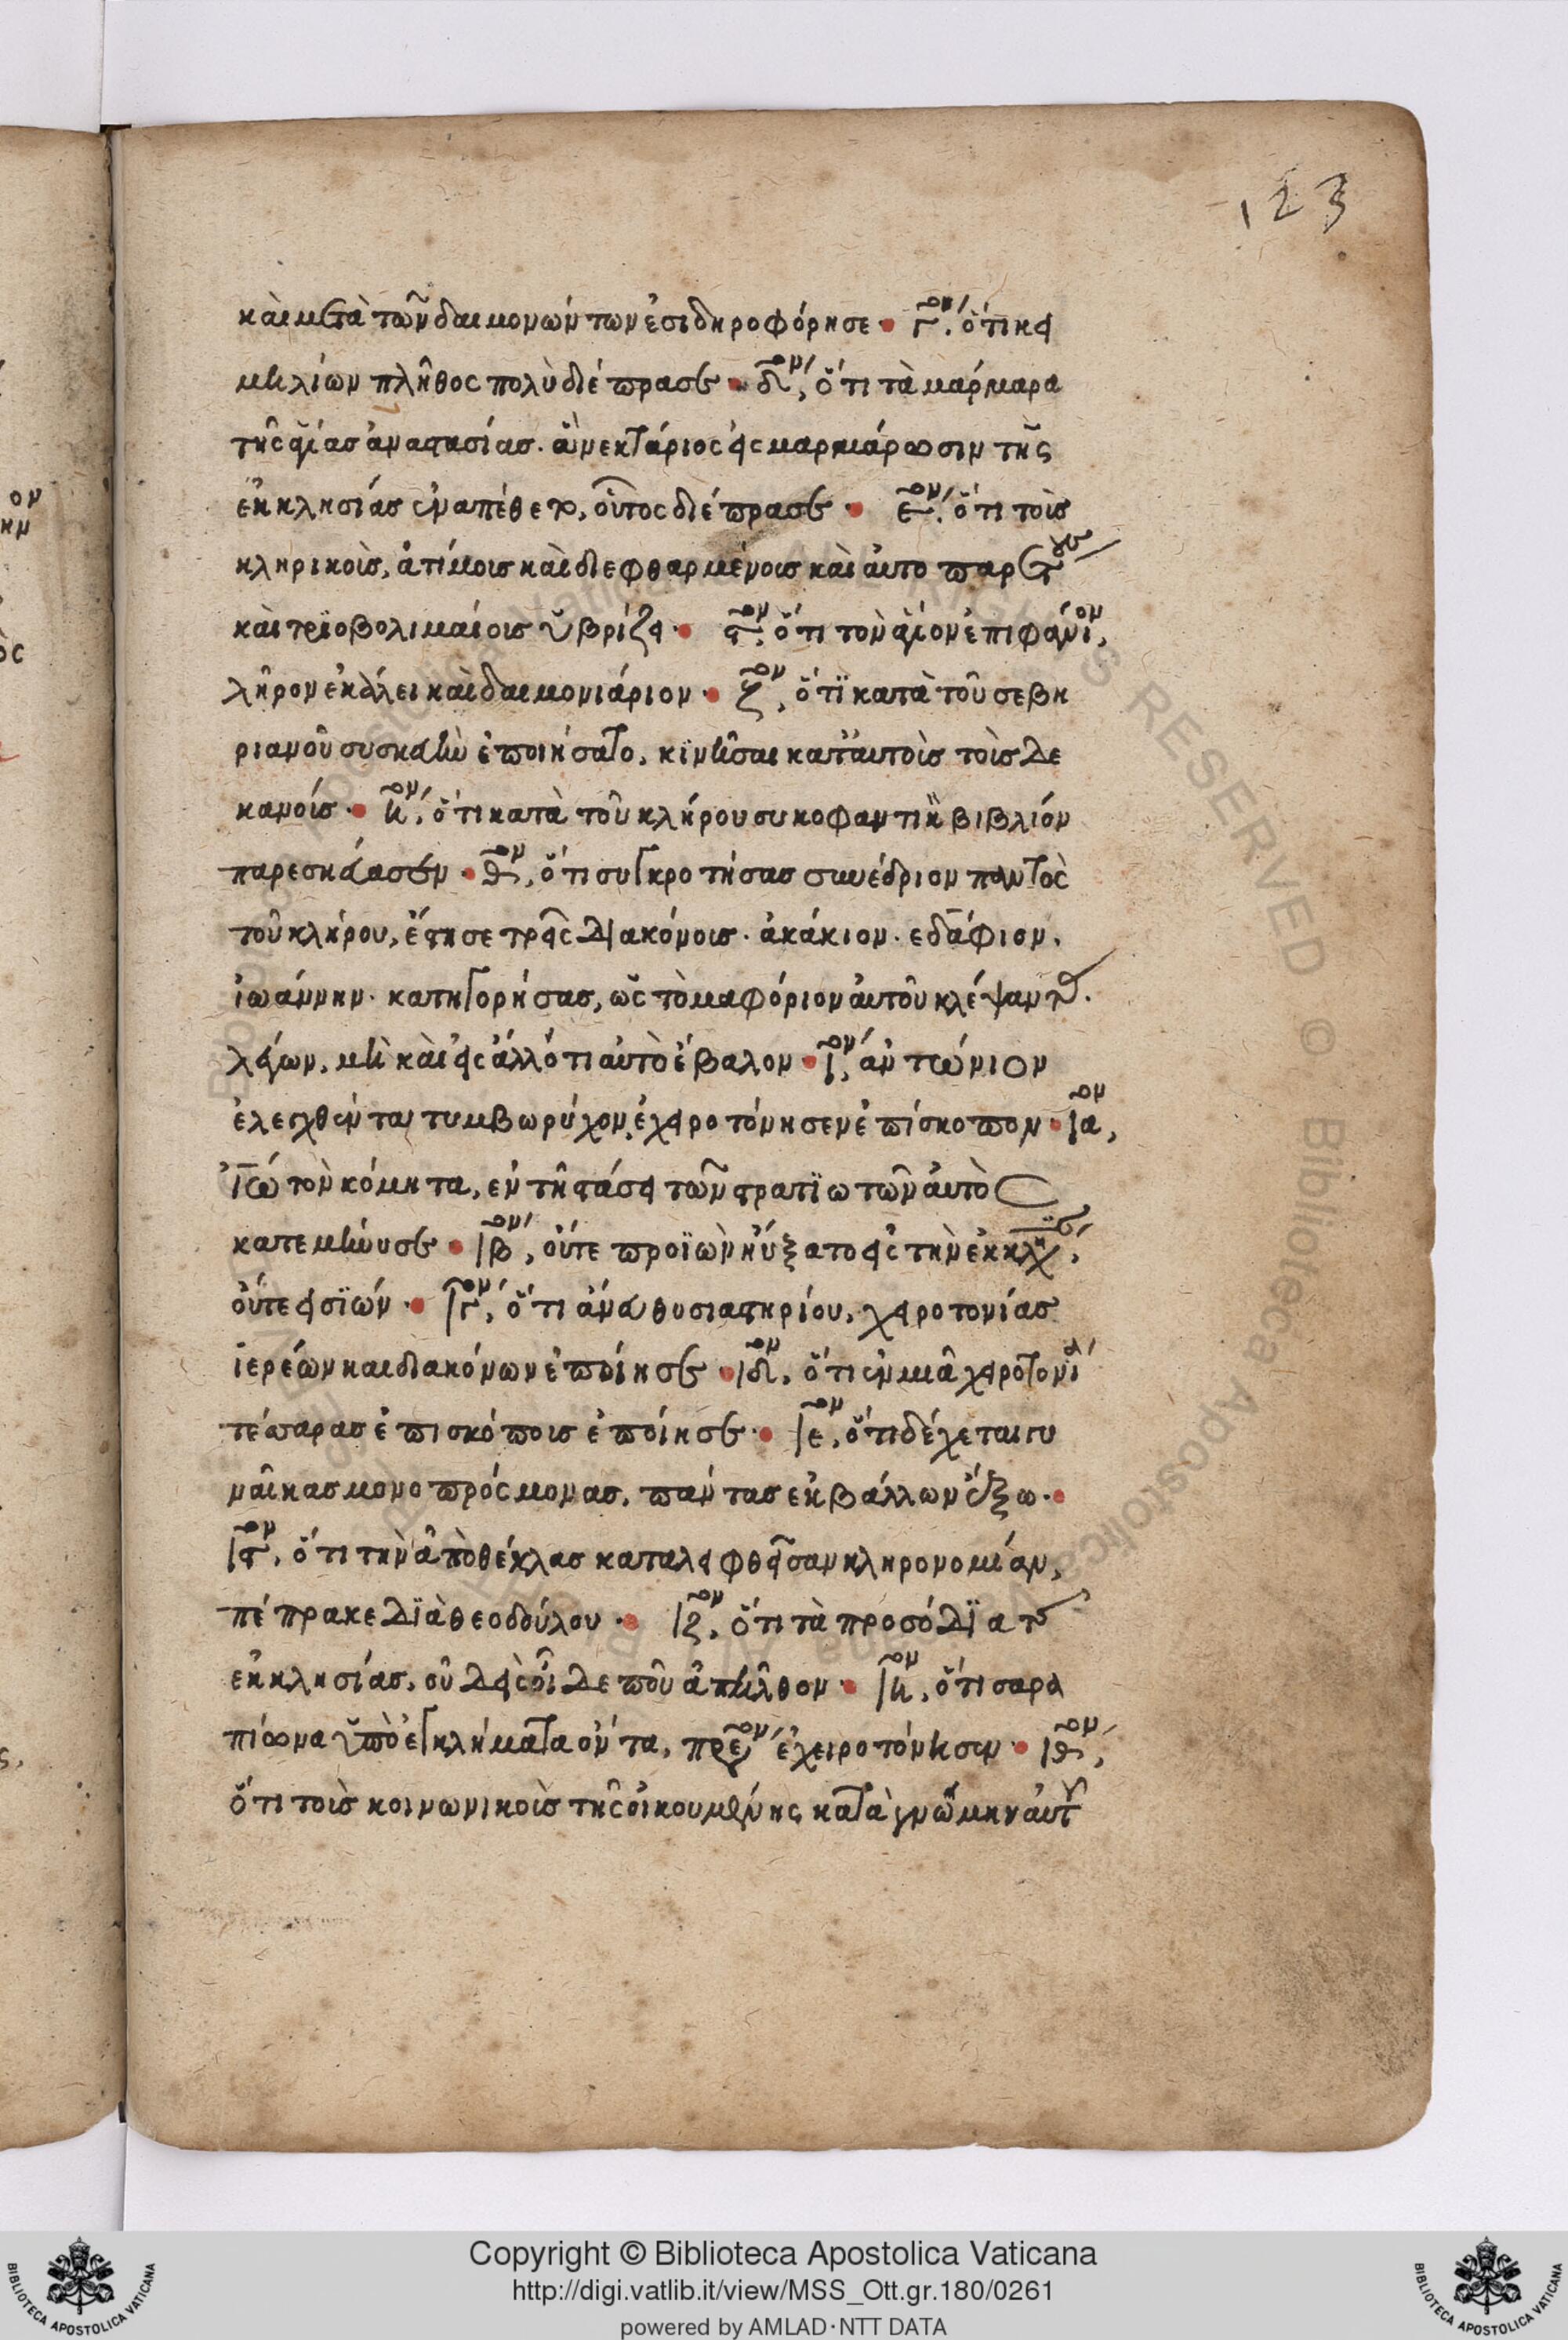 123
καὶ μετὰ τῶν δαιμονώντων ἐσιδηροφόρησε · γ´ον, ὅτι κει
μηλίων πλῆθος πολὺ διέπρασε · δ´ον, ὅτι τὰ μάρμαρα
τῆς ἁγίας ἀναστασίας · ἃ νεκτάριος εἰς μαρμάρωσιν τῆς
ἐκκλησίας ἐναπέθετο, οὗτος διέπρασε · ε´ον, ὅτι τοὺς
κληρικοὺς, ἀτίμους καὶ διεφθαρμένους καὶ αὐτο παρ
καὶ τριοβολιμαίους ὕβριζει · ϛ´ον, ὅτι τὸν ἅγιον ἐπιφάνιον,
λῆρον ἐκάλει καὶ δαιμονιάριον · ζ´ον, ὅτι κατὰ τοῦ σεβη
ριανοῦ συσκευὴν ἐποιήσατο, κινῆσαι κατ' αὐτοὺς τοὺς δε
κανούς · η´ον, ὅτι κατὰ τοῦ κλήρου συκοφαντικὸν βιβλίον
παρεσκεύασεν · θ´ον, ὅτι συγκροτήσας συνέδριον παντὸς
τοῦ κλήρου, ἔστησε τρεῖς διακόνους · ἀκάκιον · εδάφιον,
ἰωάννην · κατηγορήσας, ὡς τὸ μαφόριον αὐτοῦ κλέψαντας.
λέγων, μὴ καὶ εἰς ἄλλό τι αὐτὸ ἔβαλον · ι´ον, ἀντώνιον
ἐλεγχθέντα τυμβωρύχον, ἐχειροτόνησεν ἐπίσκοπον · ια´ον,
ἰω τὸν κόμητα, εν τῇ στάσει τῶν στρατιωτῶν αὐτὸς
κατεμήνυσε · ιβ´ον, οὔτε προϊὼν ηὔξατο εἰς τὴν ἐκκλησίαν,
οὔτε εἰσϊών · ιγ´ον, ὅτι ἄνευ θυσιαστηρίου, χειροτονίας
ἱερέων καὶ διακόνων ἐποίησε · ιδ´ον, ὅτι ἐν μιᾷ χειροτονίᾳ
τέσσαρας ἐπισκόπους ἐποίησε · ιε´ον, ὅτι δέχεται γυ
ναῖκας μονο πρός μονας, πάντας ἐκβάλλων ἔξω ·
ιϛ´ον, ὅτι τὴν ἀπὸ θέκλας καταλειφθεῖσαν κληρονομίαν,
πέπρακε διὰ θεοδούλου · ιζ´ον, ὅτι τὰ προσόδια τῆς
ἐκκλησίας, οὐδεὶς οἶδε ποῦ ἀπῆλθον · ιη´ον, ὅτι σαρα
πίωνα ὑπὸ ἐγκλήματα ὄντα, πρεσβύτερον ἐχειροτόνησεν · ιθ´ον,
ὅτι τοὺς κοινωνικοὺς τῆς οἰκουμένης κατὰ γνώμην αὐτοῦ
Copyright © Biblioteca Apostolica Vaticana
http://digi.vatlib.it/view/MSS_Ott.gr.180/0261
powered by AMLAD·NTT DATA